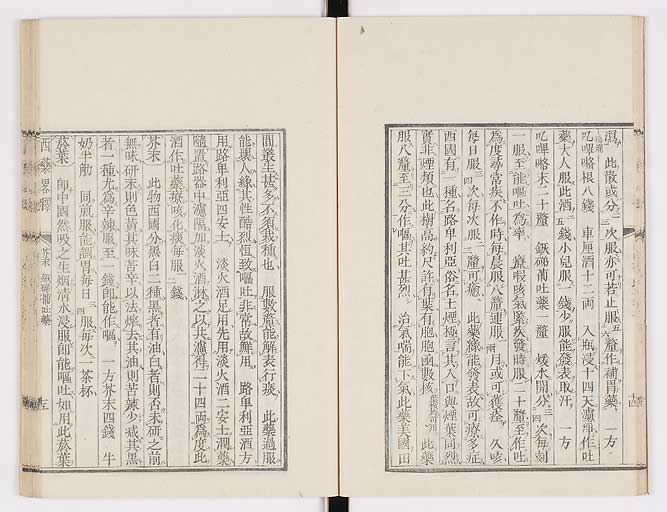 濕 此散或分三次服亦可若止服五六釐作補胃藥 一方
叱嗶咯根八錢 車厘酒十二両 入瓶浸十四天濾淨作吐
藥大人服此酒五錢小兒服一錢少服能發表取汗 一方
叱嗶咯末二十釐 鉄磺葡吐藥一釐 煖水開分三四次每刻
一服至能嘔吐為率 療暇咳氣緊疾發時服一二十釐至作吐
為度尋常疾不作時每晨服八釐連服一兩月或可獲痊 久咳
每日服三四次每次服二釐可癒 此藥綠能發表故可療多症
西國有一種名路卑利亞俗名土煙極言其入口與煙葉同烈
實非煙類也此樹高約尺許有葉有胞胞函數核 此藥
服八釐至三分作嘔其吐甚烈 治氣喘能下氣此藥美國田
間叢生甚多不須栽種也 服數釐能解表行痰 此藥過服
能讓人綠其性酷烈恒致嘔吐非常故鮮用 路卑利亞酒方
用路卑利亞四安士 淡火酒足用先用淡火酒二安士潤藥
隨置路器中濾隔加淡火酒淋之以共濾得二十四両為度此
酒作吐藥療咳化痰每服一二錢
芥末 此物西國分黑白二種黑者有油白者則否末研之前
無味研末則色黃其味苦辛以法榨去其油則苦辣少減其黑
者一種尤為辛辣服至一二錢卽能作嘔 一方芥末四錢 牛
奶半觔 同煎服能調胃每日三四服每次一茶杯
菸葉 卽中國然吸之生烟清水浸服卽能嘔吐如用此菸葉
西藥畧釋 芥末 鉄磺葡吐藥